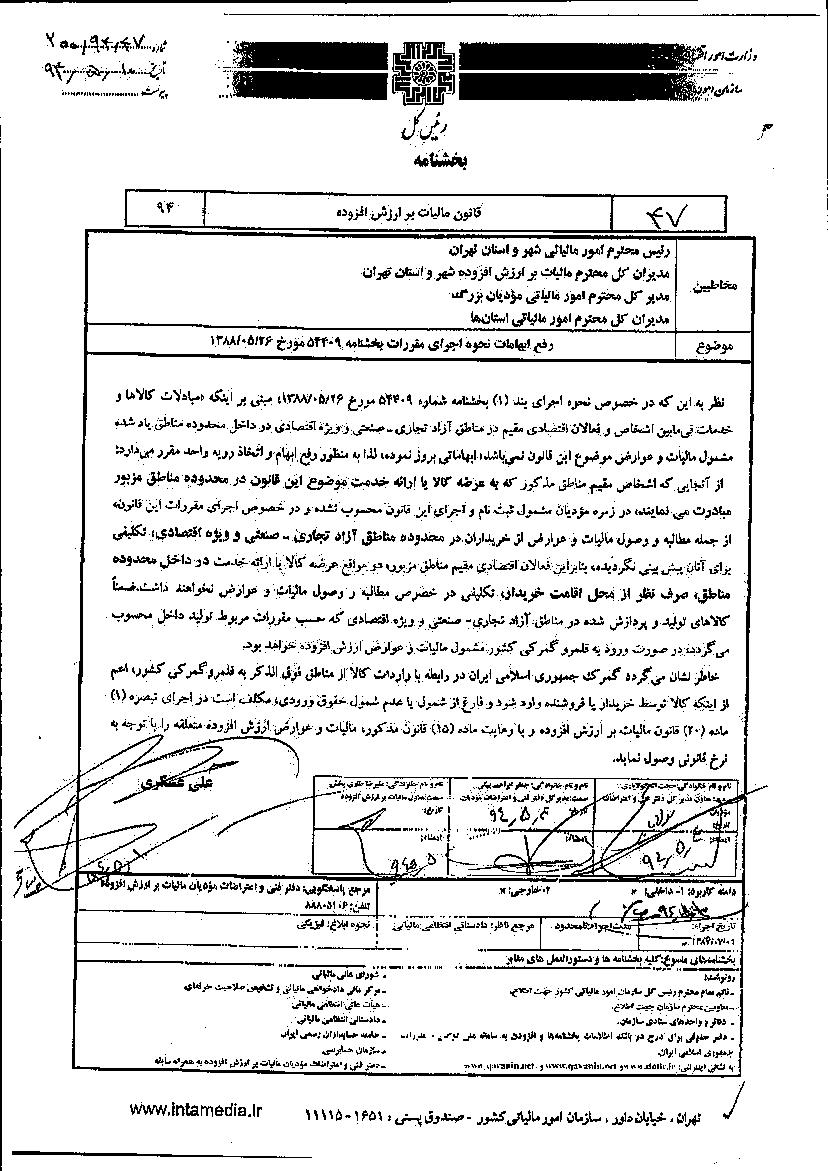 شماره: ۲۰۰/۹۴/۴۷
تاریخ:
پیوست:
وزارت امور
سازمان امور
رئیس کل
بخشنامه
۴۷
قانون مالیات بر ارزش افزوده
۹۴
مخاطبین
رئیس محترم امور مالیاتی شهر و استان تهران
مدیران کل محترم مالیات بر ارزش افزوده شهر و استان تهران
مدیر کل محترم امور مالیاتی مؤدیان بزرگ
مدیران کل محترم امور مالیاتی استان‌ها
موضوع
رفع ابهامات نحوه اجرای مقررات بخشنامه ۵۴۴۰۹ مورخ ۱۳۸۸/۰۵/۲۶
نظر به این که در خصوص نحوه اجرای بند (۱) بخشنامه شماره ۵۴۴۰۹ مورخ ۱۳۸۸/۰۵/۲۶، مبنی بر اینکه «مبادلات کالاها و
خدمات فی‌مابین اشخاص و فعالان اقتصادی مقیم در مناطق آزاد تجاری ـ صنعتی و ویژه اقتصادی در داخل محدوده مناطق یاد شده
مشمول مالیات و عوارض موضوع این قانون نمی‌باشد» ابهاماتی بروز نموده، لذا به منظور رفع ابهام و اتخاذ رویه واحد مقرر می‌دارد:
از آنجایی که اشخاص مقیم مناطق مذکور که به عرضه کالا یا ارائه خدمت موضوع این قانون در محدوده مناطق مزبور
مبادرت می نمایند، در زمره مؤدیان مشمول ثبت نام و اجرای این قانون محسوب نشده و در خصوص اجرای مقررات این قانون،
از جمله مطالبه و وصول مالیات و عوارض از خریداران در محدوده مناطق آزاد تجاری ـ صنعتی و ویژه اقتصادی، تکلیفی
برای آنان پیش بینی نگردیده، بنابراین فعالان اقتصادی مقیم مناطق مزبور، در مواقع عرضه کالا یا ارائه خدمت در داخل محدوده
مناطق، صرف نظر از محل اقامت خریدار، تکلیفی در خصوص مطالبه و وصول مالیات و عوارض نخواهند داشت. ضمناً
کالاهای تولید و پردازش شده در مناطق آزاد تجاری- صنعتی و ویژه اقتصادی که حسب مقررات مربوط تولید داخل محسوب
می‌گردد، در صورت ورود به قلمرو گمرکی کشور، مشمول مالیات و عوارض ارزش افزوده خواهد بود.
خاطر نشان می‌گردد گمرک جمهوری اسلامی ایران در رابطه با واردات کالا از مناطق فوق الذکر به قلمرو گمرکی کشور، اعم
از اینکه کالا توسط خریدار یا فروشنده وارد شود و فارغ از شمول یا عدم شمول حقوق ورودی، مکلف است در اجرای تبصره (۱)
ماده (۲۰) قانون مالیات بر ارزش افزوده و با رعایت ماده (۱۵) قانون مذکور، مالیات و عوارض ارزش افزوده متعلقه را با توجه به
نرخ قانونی وصول نماید.
علی عسکری
نام و نام خانوادگی:
نام و نام خانوادگی:
نام و نام خانوادگی: علیرضا
تاریخ:
امضاء:
دامنه کاربرد: ۱- داخلی:
۲- خارجی:
مرجع پاسخگویی: دفتر فنی و اعتراضات مؤدیان مالیات بر ارزش افزوده
تلفن:
تاریخ اجراء:
مدت اجرا: نامحدود
مرجع ناظر: دادستانی انتظامی مالیاتی
نحوه ابلاغ: فیزیکی
بخشنامه‌های منسوخ: کلیه بخشنامه ها و دستورالعمل های مغایر
رونوشت:
ـ قائم مقام محترم رئیس کل سازمان امور مالیاتی کشور جهت اطلاع.
ـ معاونین محترم سازمان جهت اطلاع.
ـ دفاتر و واحدهای ستادی سازمان.
ـ دفتر حقوقی برای درج در بانک اطلاعات بخشنامه‌ها و افزودن به سامانه ملی قوانین و مقررات
جمهوری اسلامی ایران.
ـ شورای عالی مالیاتی
ـ مرکز عالی دادخواهی مالیاتی و تشخیص صلاحیت حرفه‌ای
ـ هیأت عالی انتظامی مالیاتی
ـ دادستانی انتظامی مالیاتی
ـ جامعه حسابداران رسمی ایران
ـ سازمان حسابرسی
ـ دفتر فنی و اعتراضات مؤدیان مالیات بر ارزش افزوده به همراه سابقه
تهران، خیابان داور، سازمان امور مالیاتی کشور - صندوق پستی: ۱۶۵۱-۱۱۱۱۵
www.intamedia.ir